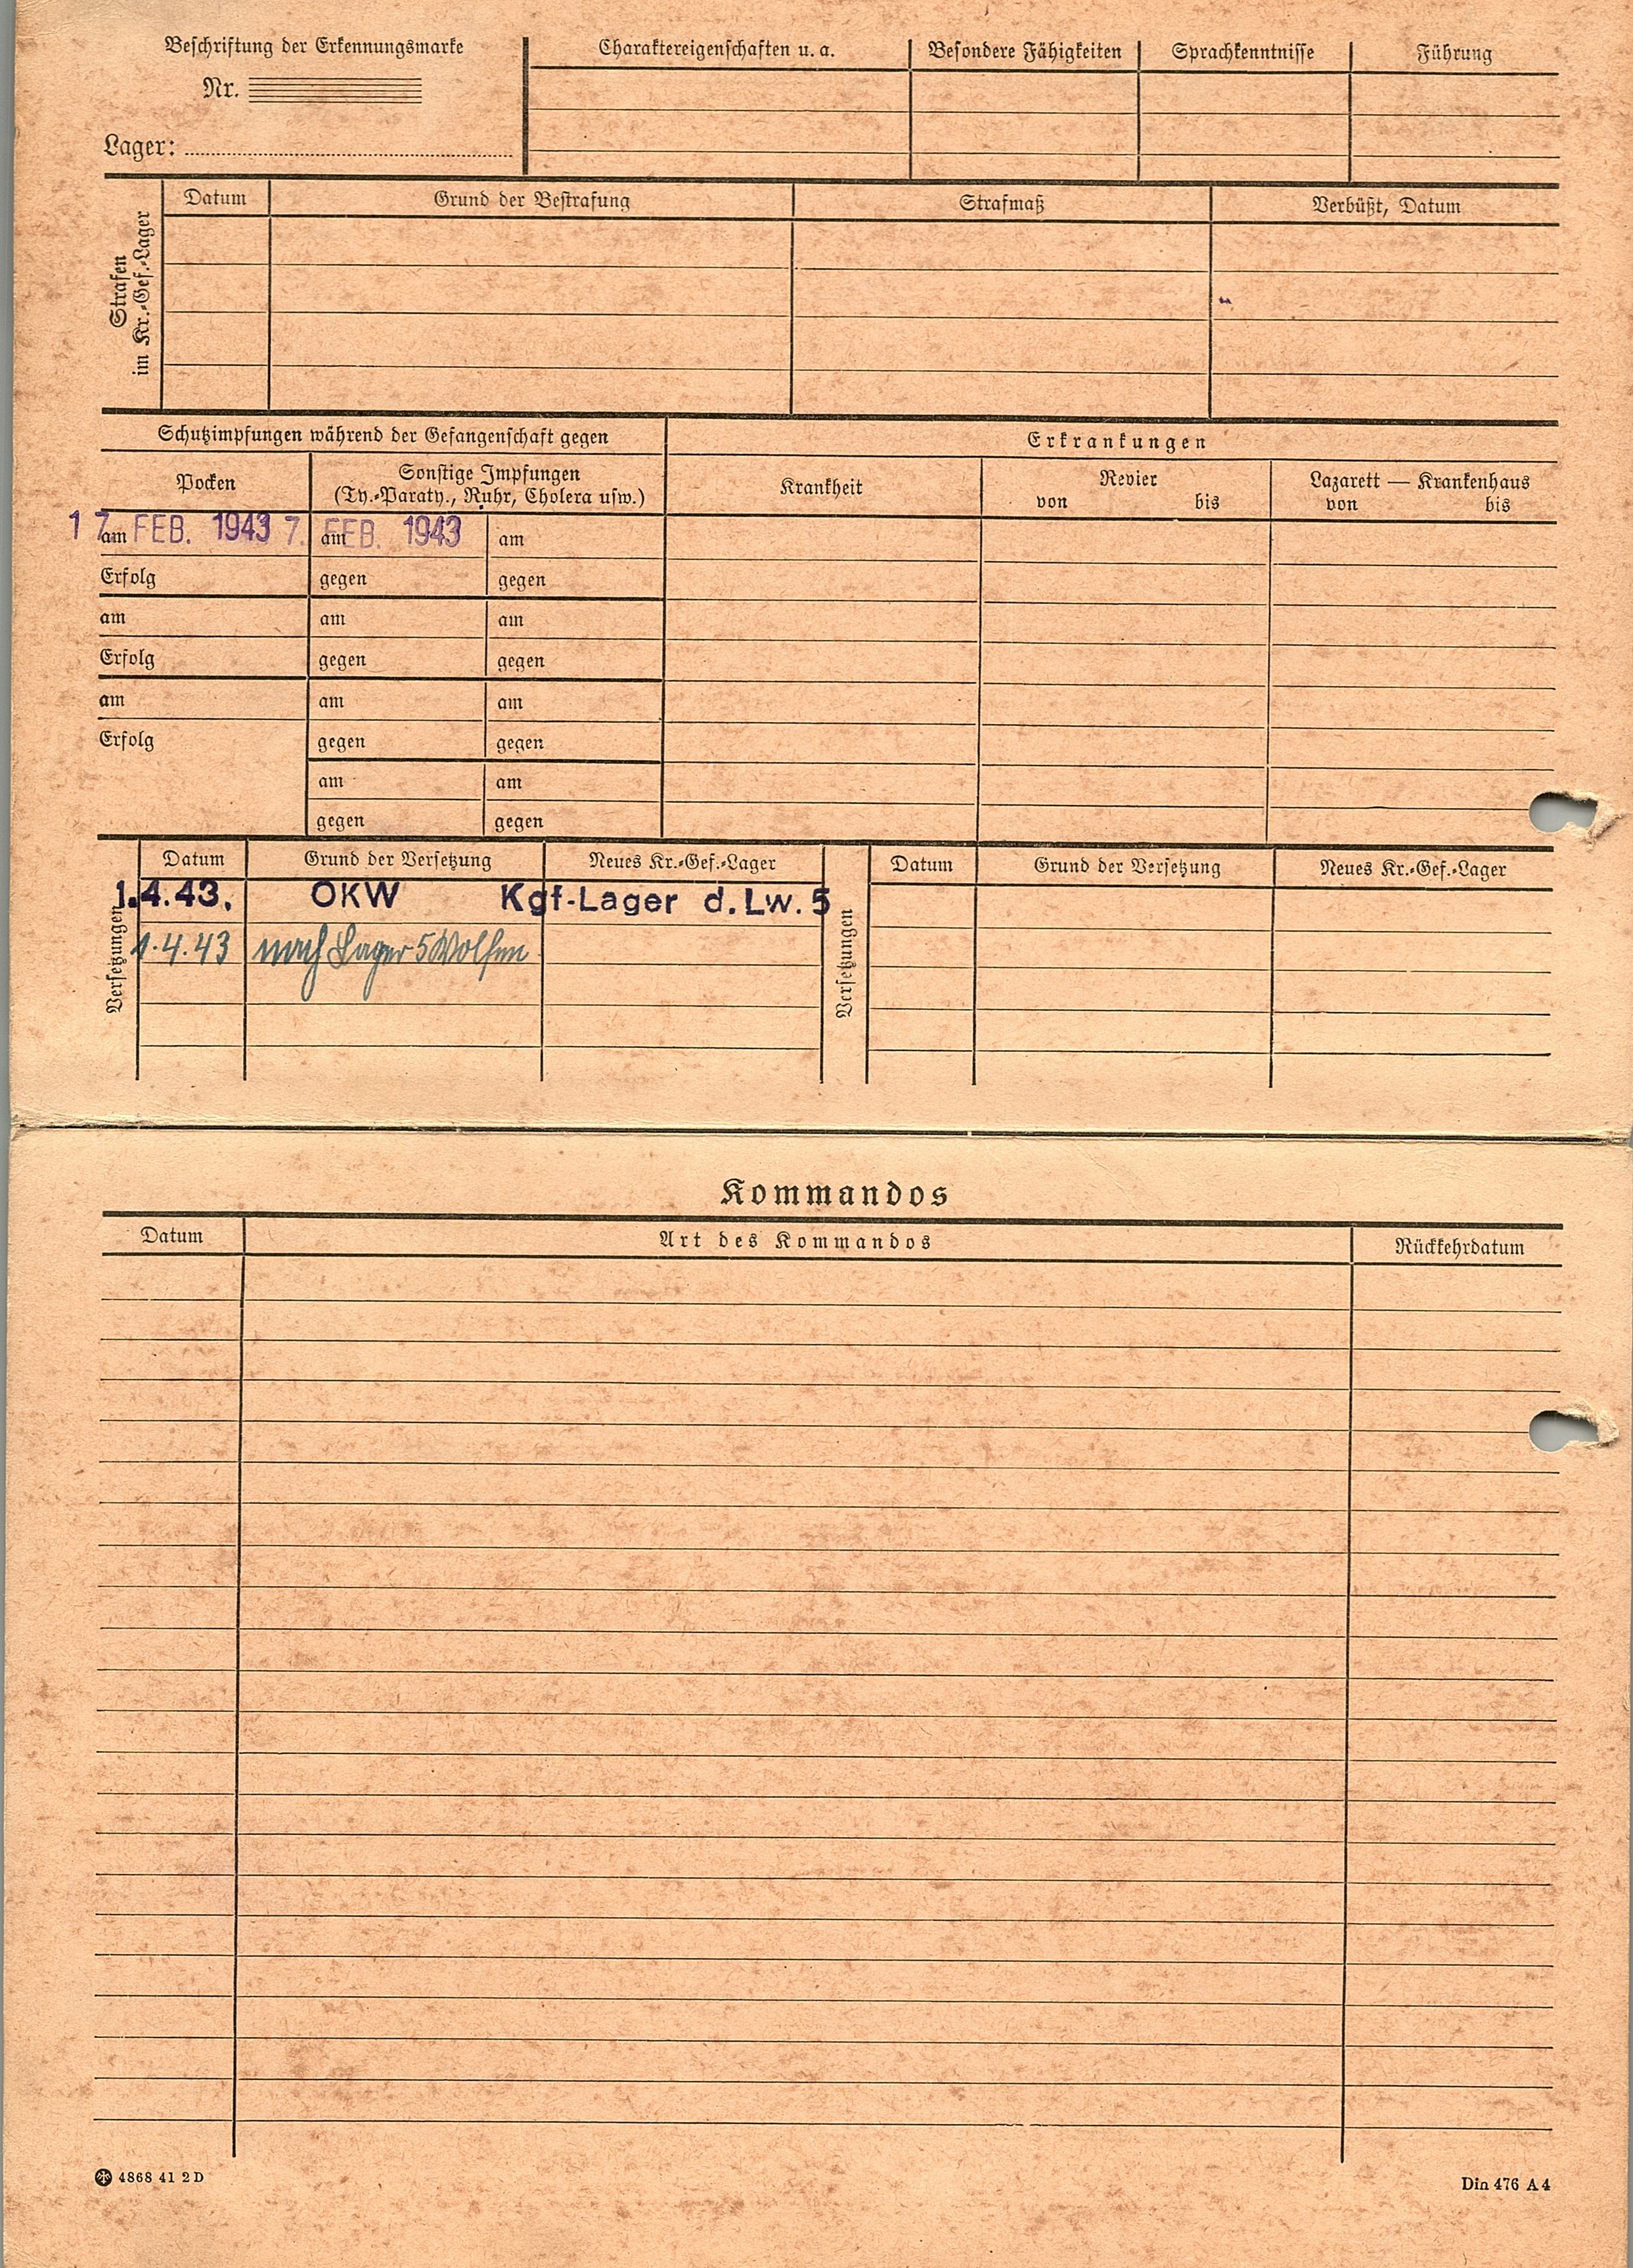 Beschriftung der Erkennungsmarke
Nr.
Lager:
Charaktereigenschaften u. a.
Besondere Fähigkeiten
Sprachkenntnisse
Führung
Strafen
im Kr.-Gef.-Lager
Datum
Grund der Bestrafung
Strafmaß
Verbüßt, Datum
Schutzimpfungen während der Gefangenschaft gegen
Erkrankungen
Pocken
Sonstige Impfungen
(Ty.-Paraty., Ruhr, Cholera usw.)
Krankheit
Revier
von bis
Lazarett — Krankenhaus
von bis
am 17. FEB. 1943
am 7. FEB. 1943
am
Erfolg
gegen
gegen
am
am
am
Erfolg
gegen
gegen
am
am
am
Erfolg
gegen
gegen
am
am
gegen
gegen
Versetzungen
Datum
Grund der Versetzung
Neues Kr.-Gef.-Lager
1.4.43. OKW Kgf-Lager d. Lw. 5
1.4.43 nach Lager 5 Wolfen
Versetzungen
Datum
Grund der Versetzung
Neues Kr.-Gef.-Lager
Kommandos
Datum
Art des Kommandos
Rückkehrdatum
4868 41 2 D
Din 476 A 4